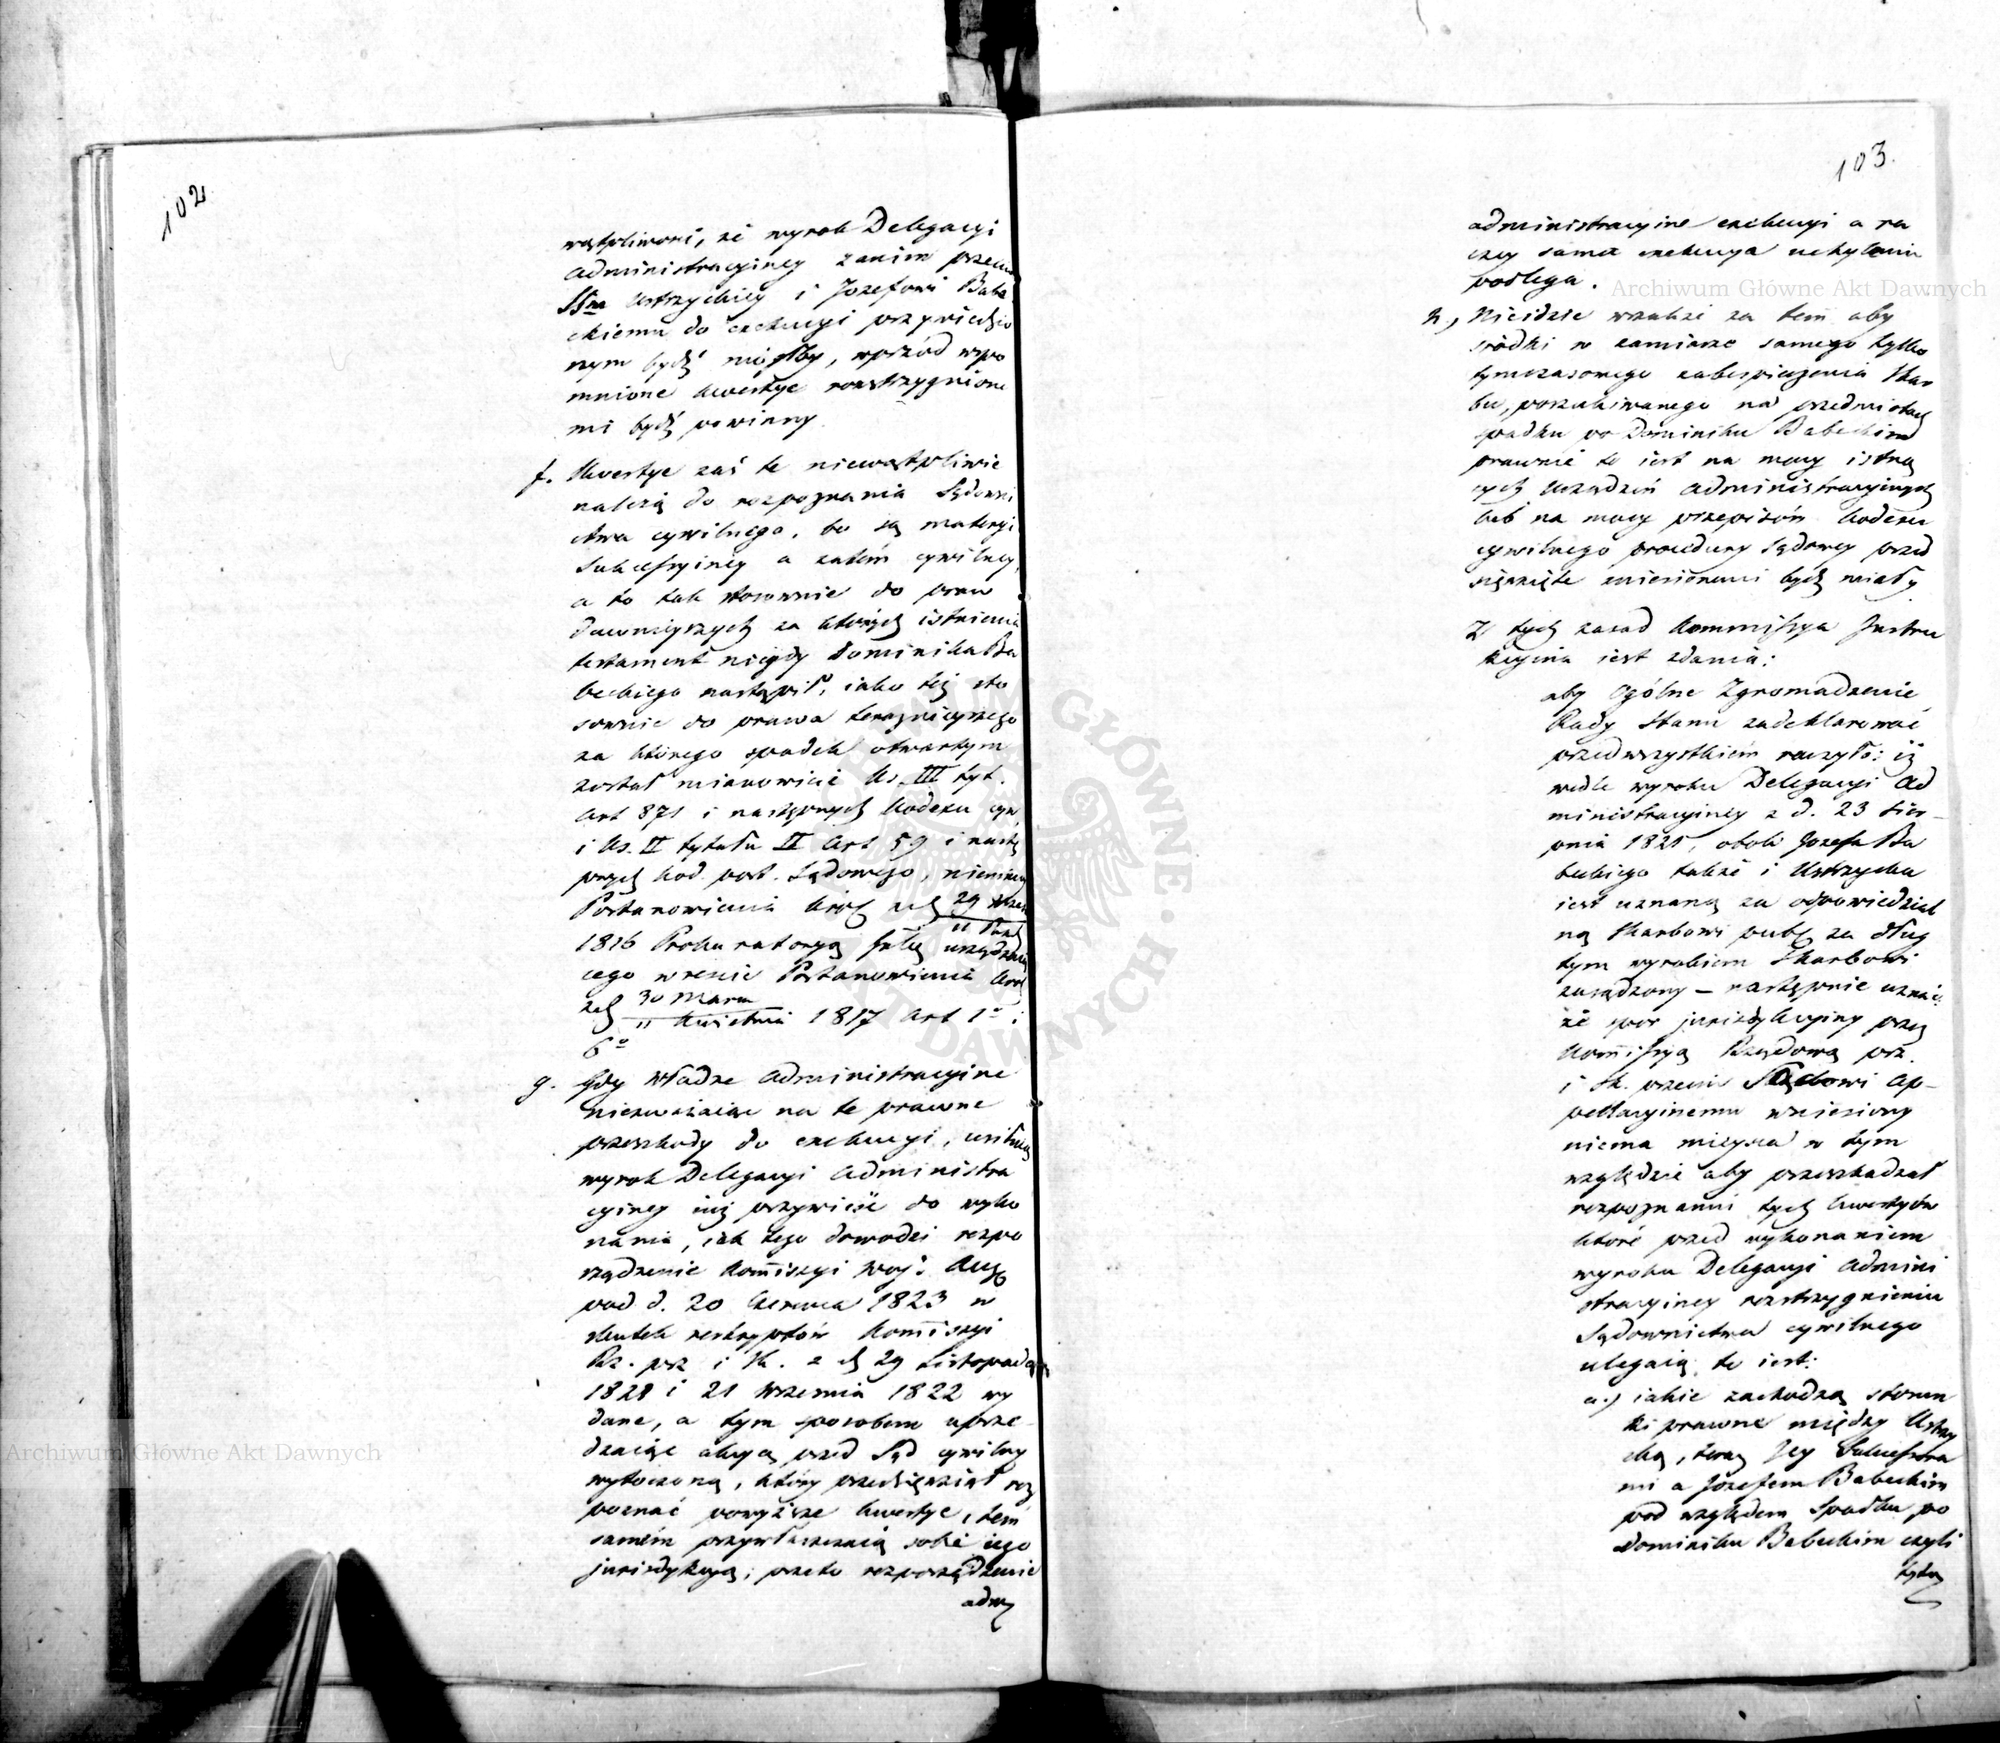 102
wątpliwości, że wyrok Delegacyi
Administracyiney zanim przeciw
SSra Ustrzyckiey i Jozefowi Babe
ckiemu do exekucyi przywiedzio
nym bydź mógłby, wprzód wspo
mnione kwestye rozstrzygnione
mi bydź powinny
f. Kwestye zaś te niewątpliwie
należą do rozpoznania Sądowni
ctwa cywilnego, bo są materyi
Sukcessyiney a zatém cywilney,
a to tak stosownie do praw
dawnieyszych za których istnienia
testament niegdy Dominika Ba
beckiego nastąpił, iako też sto
sownie do prawa teraznieyszego
za którego spadek otwartym
został mianowicie Ks. III tyt.
Art 871 i następnych Kodexu cyw.
i Ks. II tytułu II Art 59 i nastę
pnych Kod. post. Sądowego, niemniey
Postanowienia Król 29
1816 Prokuratoryą urządzaią
cego wreście Postanowienia Krol
30 Marca
" Kwietnia 1817 Art 1º i
6º
g. Gdy Władze Administracyine
niezważaiąc na te prawne
przeszkody do exekucyi, usiłuią
wyrok Delegacyi Administra
cyiney iuż przywieść do wyko
nania, iak tego dowodzi rozpo
rządzenie Kommissyi Woj: Aug
pod d. 20 Czerwca 1823 w
skutek reskryptów Kommissyi
Rz. prz i Sk. z d 29 Listopada
1821 i 21 Września 1822 wy
dane, a tym sposobem uprze
dzaiąc akcyą przed Sąd cywilny
wytoczoną, który przedsięwziął roz
poznać powyższe kwestye, tém
samém przywłaszczaią sobie iego
jurisdykcyą; przeto rozporządzenie
adm
103.
administracyine exekucyi a ra
czey sama exekucya uchyleniu
podlega.
h., Nieidzie wszakże za tem aby
środki w zamiarze samego tylko
tymczasowego zabespieczenia Skar
bu, poszukiwanego na przedmiotach
spadku po Dominiku Babeckim
prawnie to iest na mocy istnią
cych Urządzeń Administracyinych
lub na mocy przepisów Kodexu
cywilnego procedury Sądowey przed
sięwzięte zniesionemi bydź miały
Z tych zasad Kommissya Instru
kcyina iest zdania:
aby Ogólne Zgromadzenie
Rady Stanu zadeklarować
przedwszystkiem raczyło: iż
wedle wyroku Delegacyi Ad
ministracyiney z d. 23 Sier-
pnia 1821, obok Jozefa Ba
beckiego także i Ustrzycka
iest uznaną za odpowiedzial
ną Skarbowi publ za dług
tym wyrokiem Skarbowi
zasądzony – następnie uznać:
że spor jurisdykcyiny przez
Kommissyą Rządową prz.
i Sk. przeciw Sądowi Ap-
pellacyinemu wzniesiony
niema mieysca w tym
względzie aby przeszkadzał
rozpoznaniu tych kwestyów
które przed wykonaniem
wyroku Delegacyi Admini
stracyiney rozstrzygnieniu
Sądownictwa cywilnego
ulegaią, to iest:
a.) iakie zachodzą stosun
ki prawne między Ustrzy
cką, teraz Jey Sukcessora
mi a Jozefem Babeckim
pod względem Spadku po
Dominiku Babeckim czyli